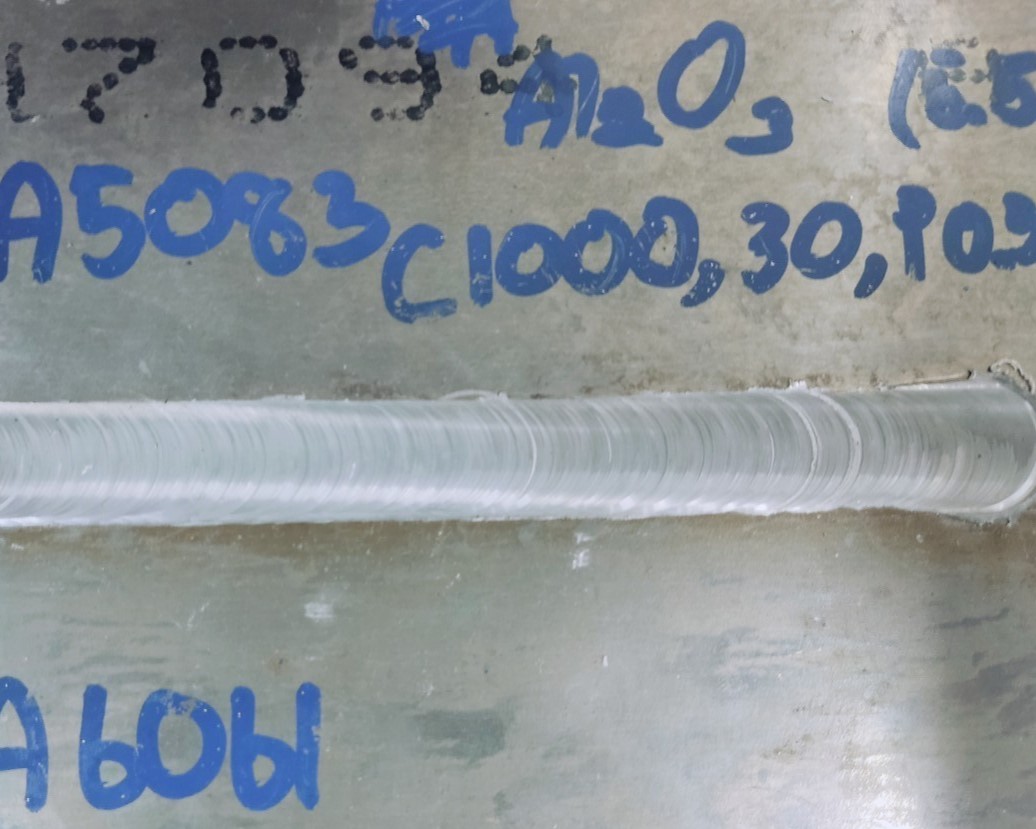 1709
Al2O3 (E5
A5083
C1000,30,P03
A6061